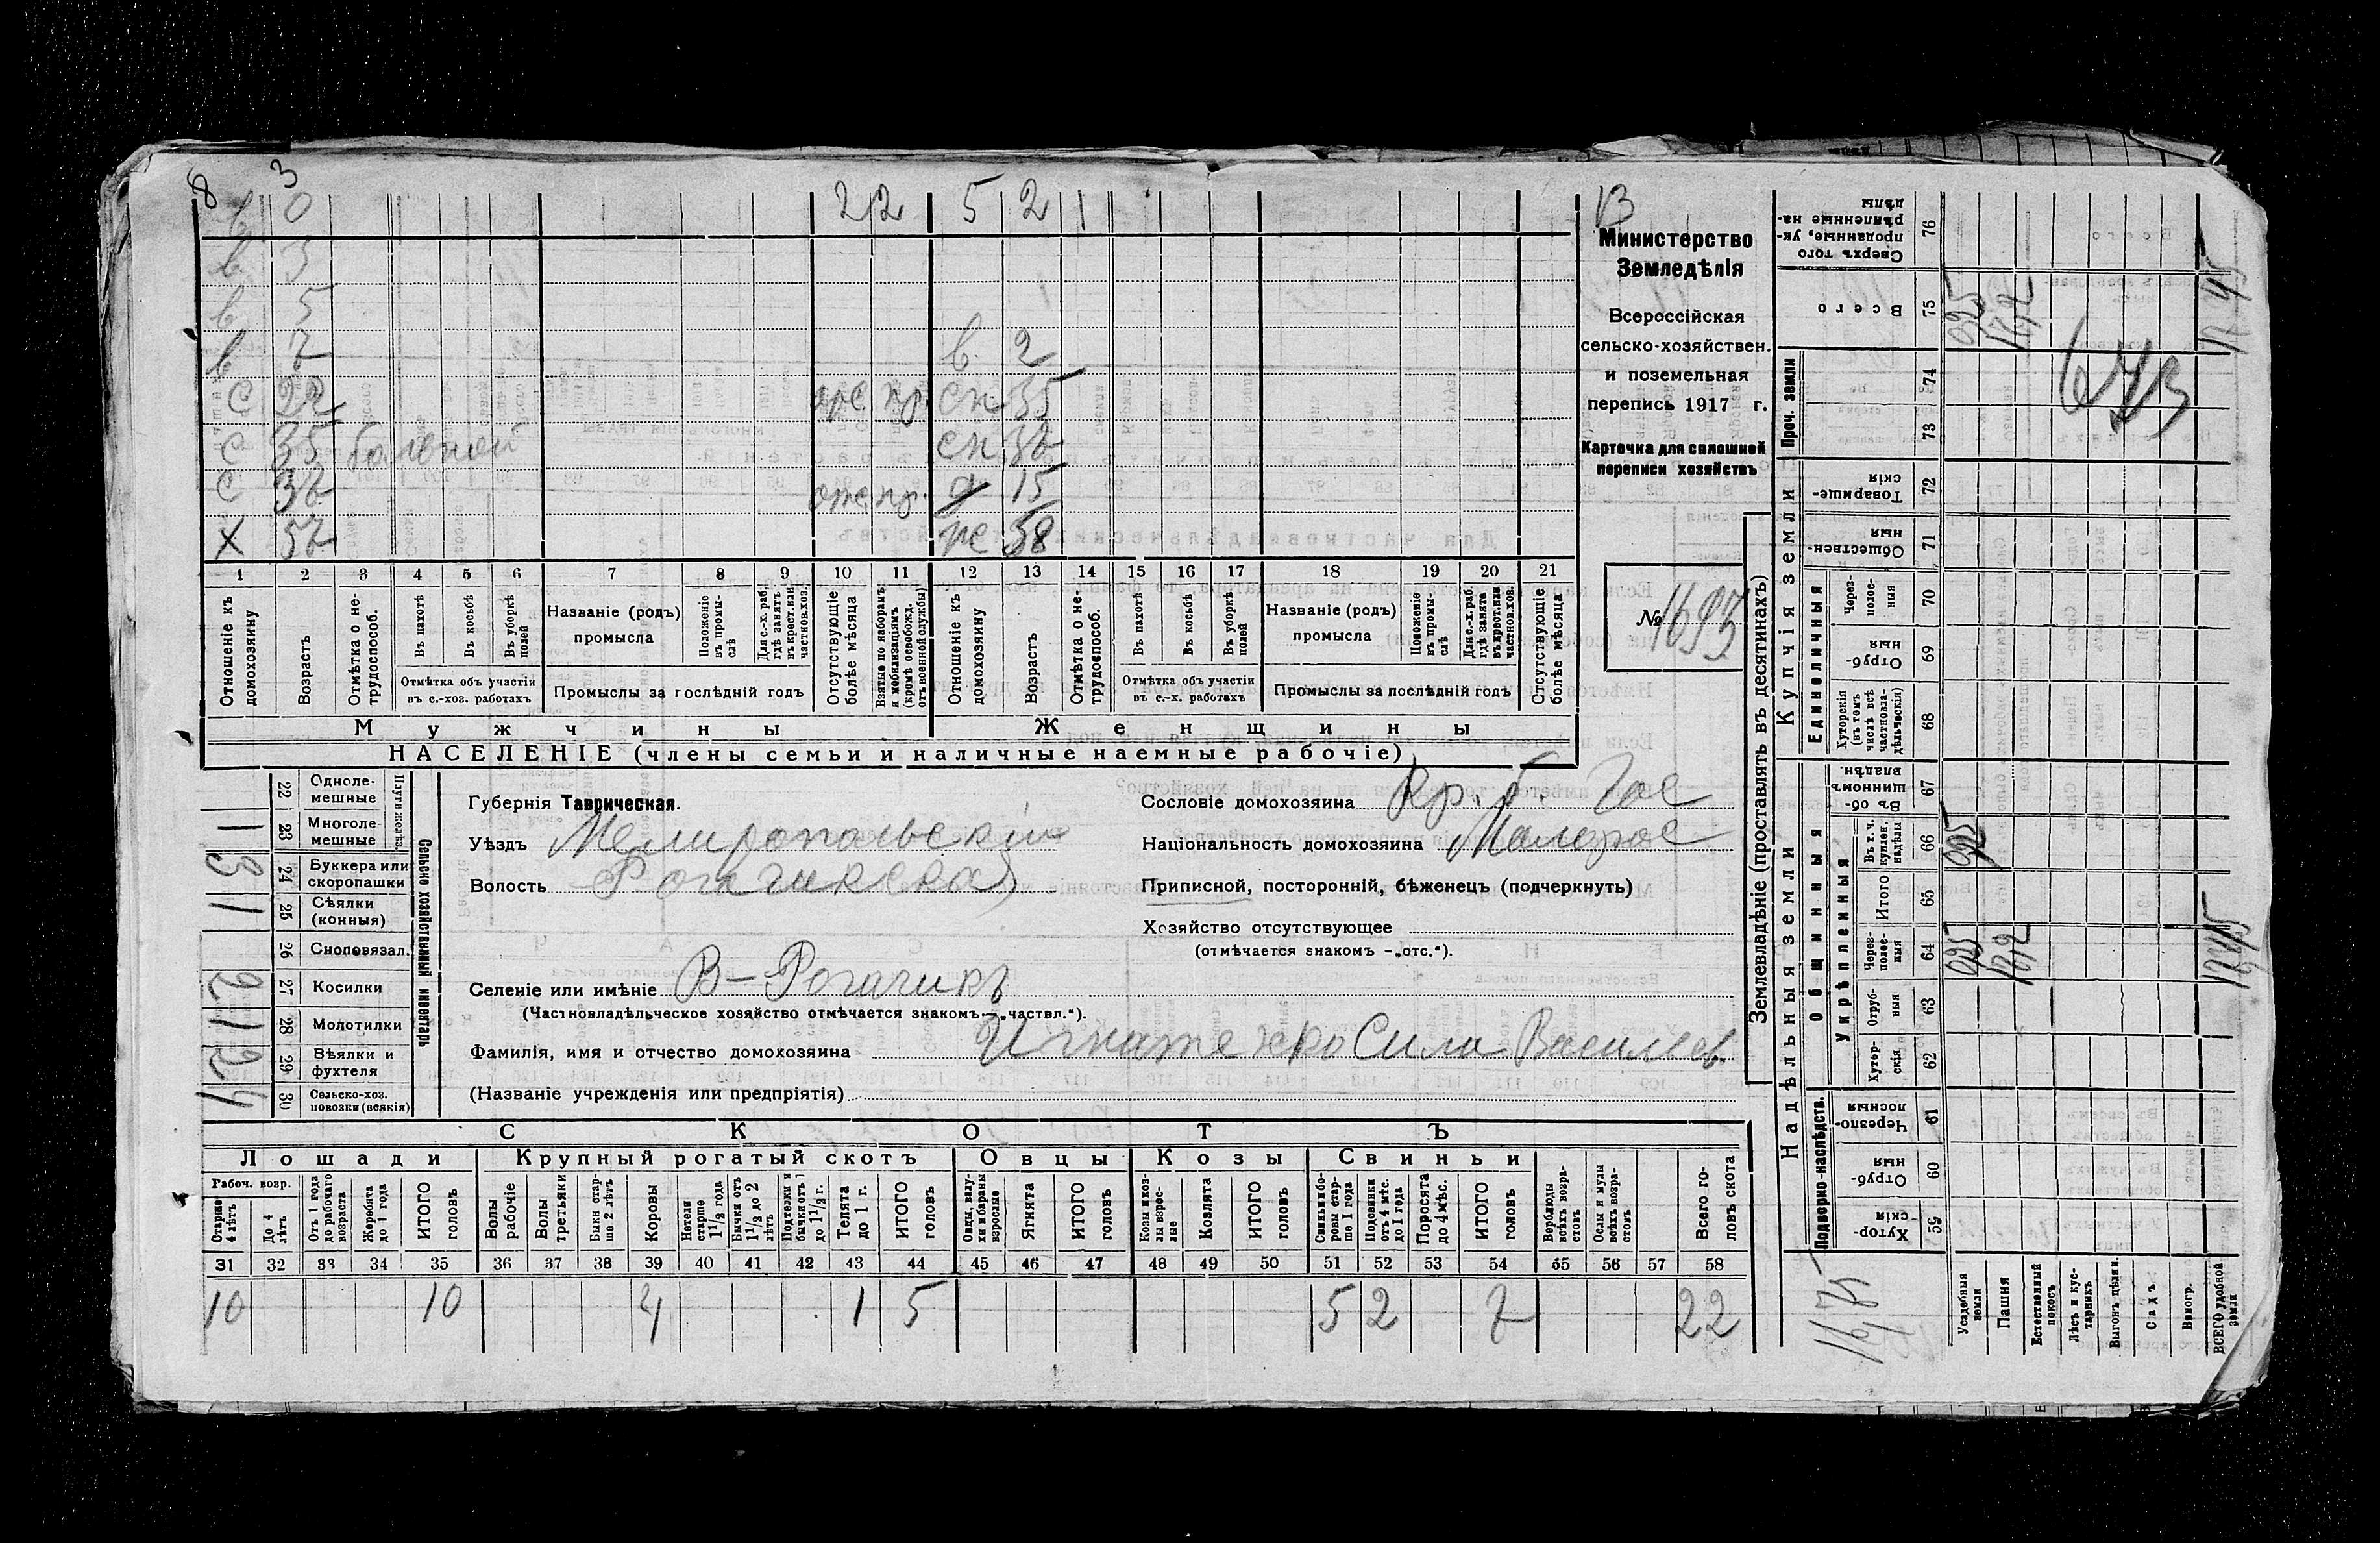 8 3 22 5 2 1 13
в 0
в 3
в 5
в 7 в 2
с 22 отс. пр. сн 35
с 35 больной сн. 32
с 37 отс. пр. д 15
х 57 же 58
1 2 3 4 5 6 7 8 9 10 11 12 13 14 15 16 17 18 19 20 21
Отношеніе къ домохозяину
Возрастъ
Отмѣтка о не-трудоспособ.
Въ пахотѣ
Въ косьбѣ
Въ уборкѣ полей
Отмѣтка объ участіи въ с.-хоз. работахъ
Названіе (родъ) промысла
Положеніе въ промы-слѣ
Для с.-х. раб. гдѣ занятъ въ крест. или частнов. хоз.
Промыслы за послѣдній годъ
Отсутствующіе болѣе мѣсяца
Взятые по наборамъ и мобилизаціямъ (кромѣ освобожд. отъ военной службы)
Отношеніе къ домохозяину
Возрастъ
Отмѣтка о не-трудоспособ.
Въ пахотѣ
Въ косьбѣ
Въ уборкѣ полей
Отмѣтка объ участіи въ с.-х. работахъ
Названіе (родъ) промысла
Положеніе въ промы-слѣ
Для с.-х. раб. гдѣ занята въ крест. или частнов. хоз.
Промыслы за послѣдній годъ
Отсутствующіе болѣе мѣсяца
Мужчины Женщины
НАСЕЛЕНІЕ (члены семьи и наличные наемные рабочіе)
Министерство
Земледѣлія
Всероссійская
сельско-хозяйствен.
и поземельная
перепись 1917 г.
Карточка для сплошной
переписи хозяйствъ
№ 1693
Сельско хозяйственный инвентарь
Плуги желѣз.
22 Одноле-мешные
1 23 Многоле-мешные
3 24 Буккера или скоропашки
1 25 Сѣялки (конныя)
26 Сноповязал.
2 27 Косилки
1 28 Молотилки
2 29 Вѣялки и фухтеля
4 30 Сельско-хоз. повозки (всякія)
Губернія Таврическая.
Уѣздъ Мелитопольскій
Волость Рогачикская
Селеніе или имѣніе В-Рогачикъ
(Частновладѣльческое хозяйство отмѣчается знакомъ — „частвл.").
Фамилія, имя и отчество домохозяина Игнатенко Сила Васильев.
(Названіе учрежденія или предпріятія)
Сословіе домохозяина Кр. б. Гос
Національность домохозяина Малорос
Приписной, посторонній, бѣженецъ (подчеркнуть)
Хозяйство отсутствующее
(отмѣчается знакомъ — „отс.").
СКОТЪ
Лошади Крупный рогатый скотъ Овцы Козы Свиньи
Рабоч. возр.
Старше 4 лѣтъ
До 4 лѣтъ
Отъ 1 года до рабочаго возраста
Жеребята до 1 года
ИТОГО головъ
Волы рабочіе
Волы третьяки
Быки стар-ше 2 лѣтъ
Коровы
Нетели старше 1 1/2 года
Бычки отъ 1 1/2 до 2 лѣтъ
Подтелки и бычки отъ 1 до 1 1/2 г.
Телята до 1 г.
ИТОГО головъ
Овцы, валу-хи и бараны взрослые
Ягнята
ИТОГО головъ
Козы и коз-лы взрос-лые
Козлята
ИТОГО головъ
Свиньи и бо-ровы стар-ше 1 года
Подсвинки отъ 4 мѣс. до 1 года
Поросята до 4 мѣс.
ИТОГО головъ
Верблюды всѣхъ возра-стовъ
Ослы и мулы всѣхъ возра-стовъ
Всего го-ловъ скота
31 32 33 34 35 36 37 38 39 40 41 42 43 44 45 46 47 48 49 50 51 52 53 54 55 56 57 58
10 10 4 1 5 5 2 7 22
Землевладѣніе (проставлять въ десятинахъ)
Надѣльныя земли Купчія земли Проч. земли
Подворно-наслѣдств. Общинныя Единоличныя
Укрѣпленныя
59 Хутор-скія
60 Отруб-ныя
61 Черезпо-лосныя
62 Хутор-скія
63 Отруб-ныя
64 Через-полос-ныя
65 Итого
66 Въ т. ч. куплен. надѣлы
67 Въ об-щинномъ владѣн.
68 Хуторскія (въ томъ числѣ всѣ частновла-дѣльческія)
69 Отруб-ныя
70 Через-полос-ныя
71 Обществен-ныя
72 Товарище-скія
73
74
75 Всего
76 Сверхъ того проданные, ук-рѣпленные на-дѣлы
Усадебныя земли
Пашня
Естественный покосъ
Лѣсъ и кус-тарникъ
Выгонъ цѣлин.
Садъ
Виногр.
ВСЕГО удобной земли